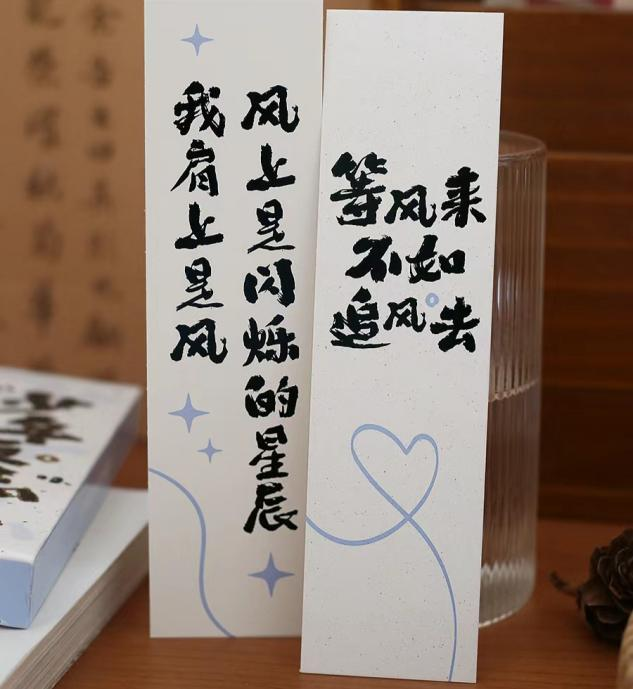 我肩上是风
风上是闪烁的星辰
等风来
不如
追风去